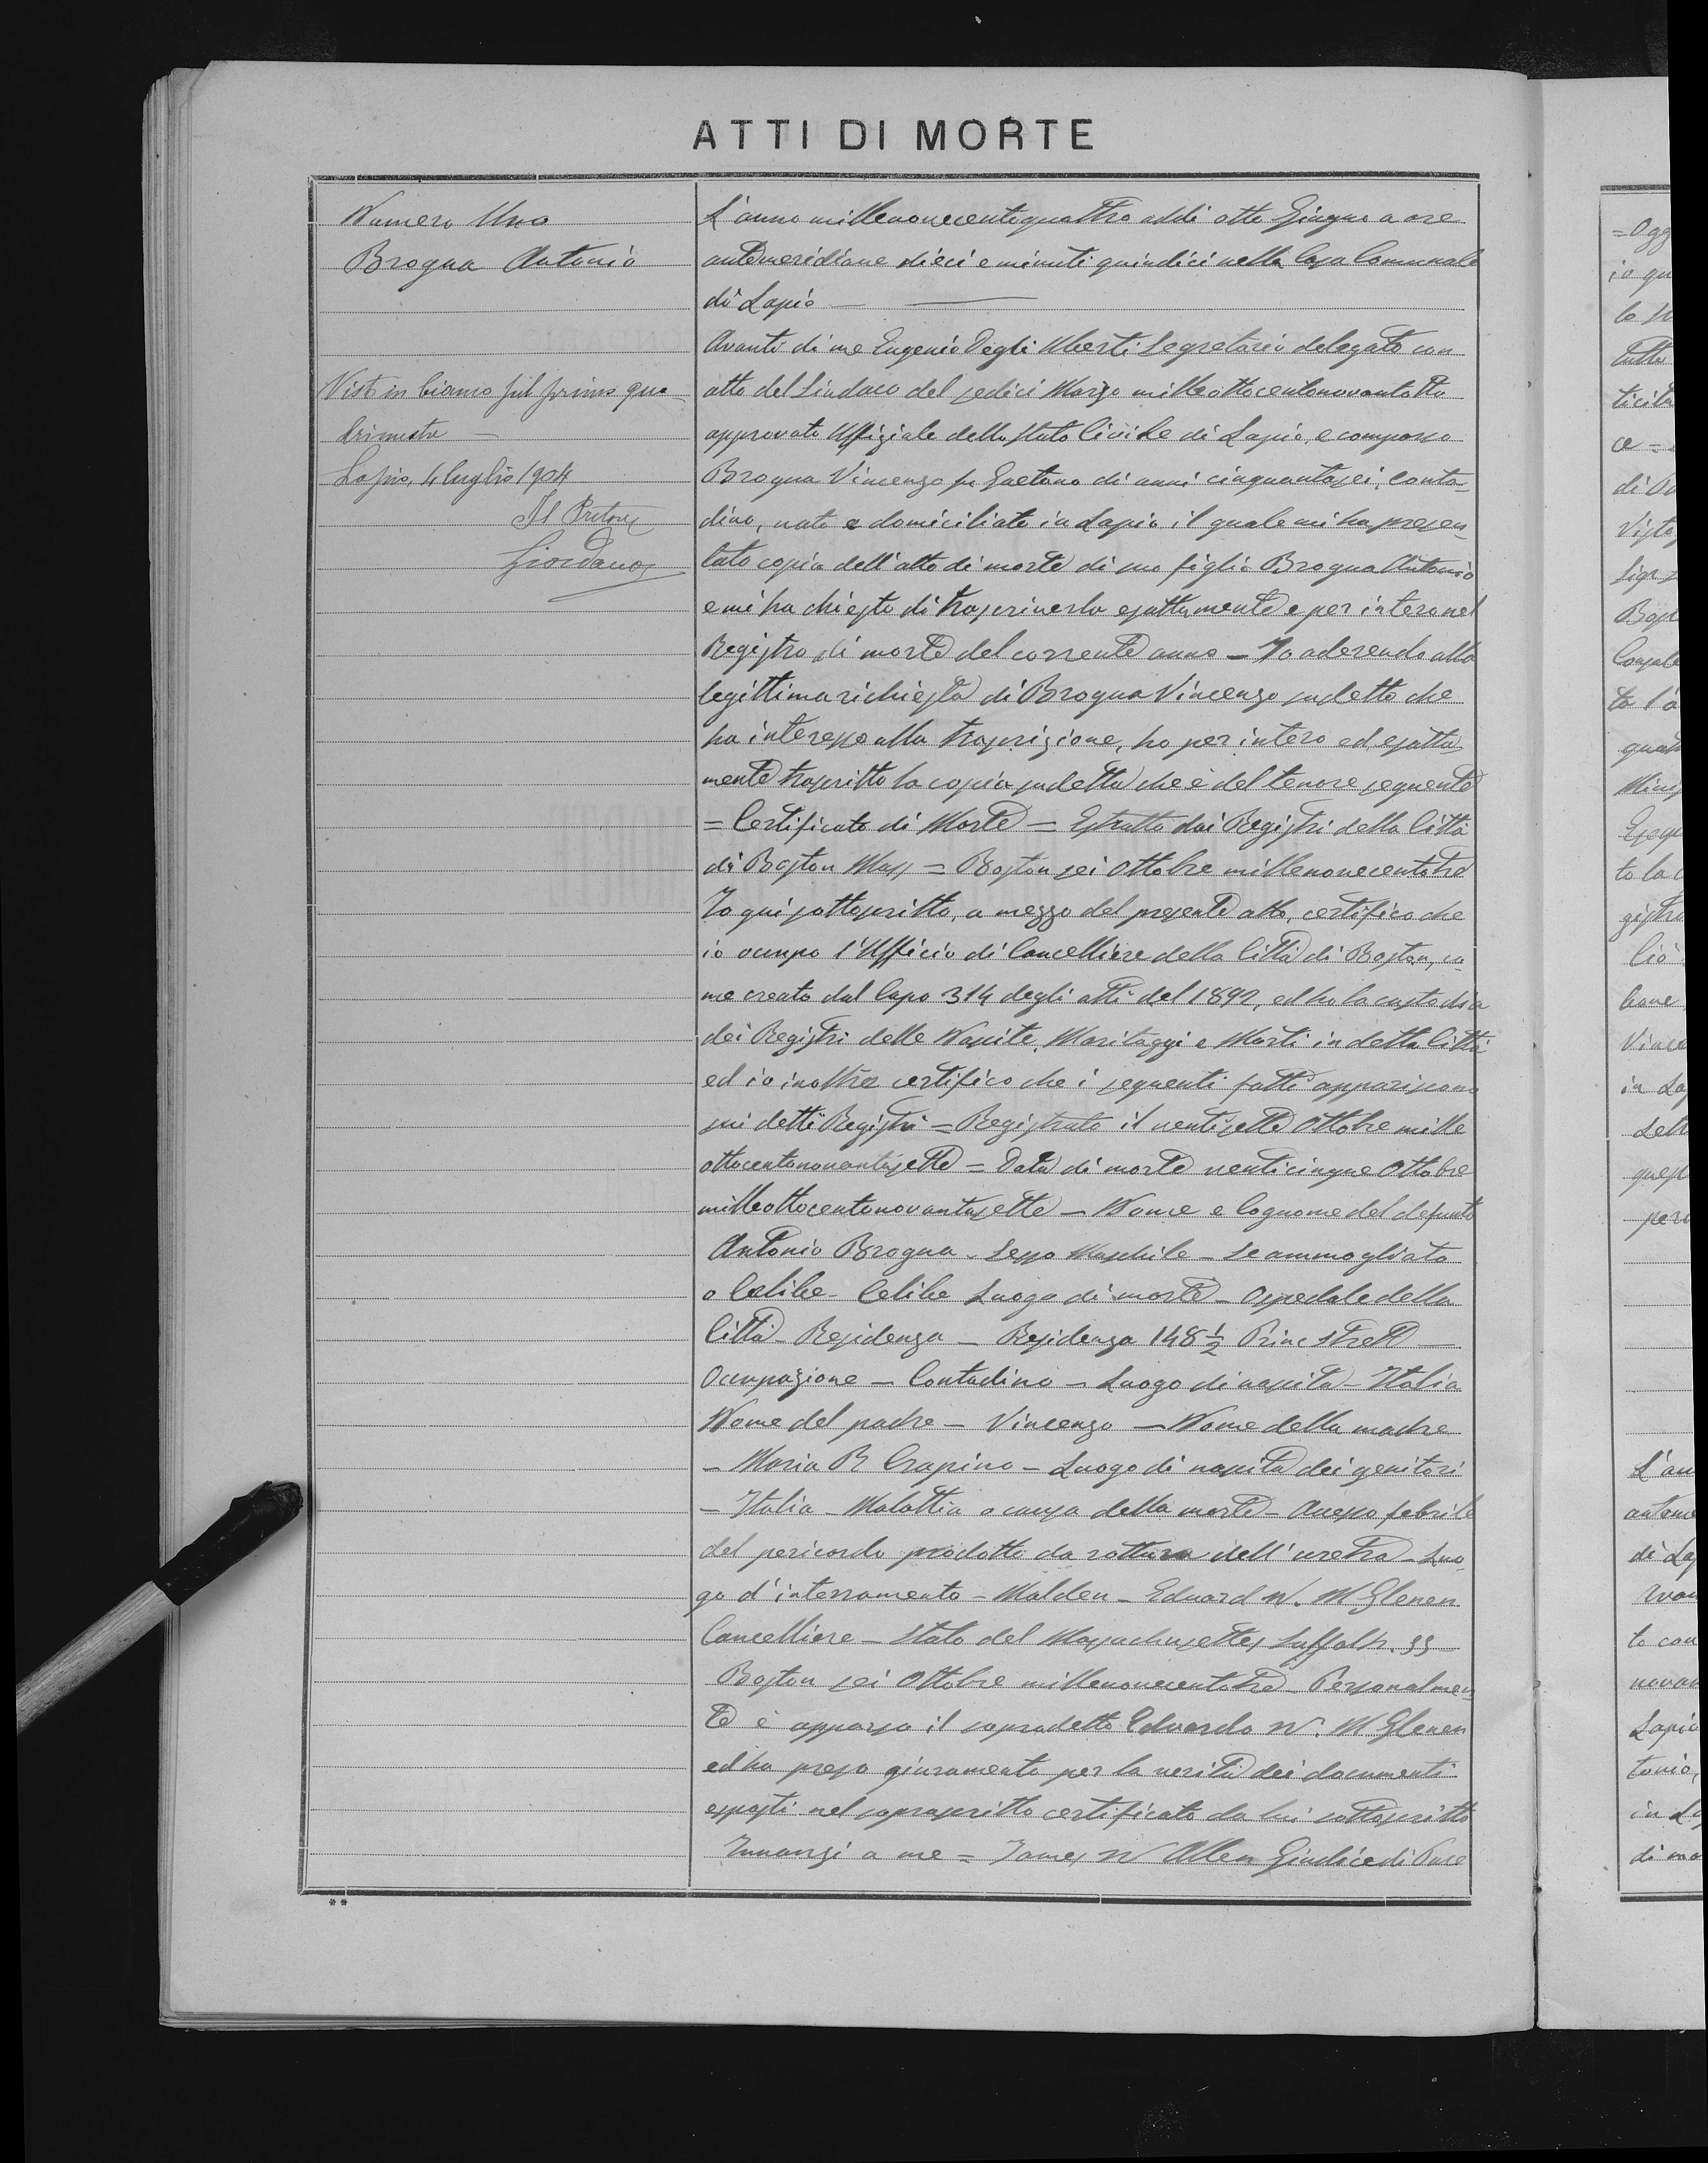 ATTI DI MORTE
Numero Uno
Brogna Antonio
Visto in bianco pel primo qua-
drimestre
Lapio, 4 luglio 1904
Il Pretore
Giordano
L'anno millenovecentoquattro addi otto Giugno a ore
antemeridiane dieci e minuti quindici nella Casa Comunale
di Lapio
Avanti di me Eugenio Degli Uberti Segretario delegato con
atto del Sindaco del sedici Marzo milleottocentonovantotto
approvato Uffiziale dello Stato Civile di Lapio, e comparso
Brogna Vincenzo fu Gaetano di anni cinquantasei, conta-
dino, nato e domiciliato in Lapio il quale mi ha presen-
tato copia dell'atto di morte di suo figlio Brogna Antonio
e mi ha chiesto di trascriverla esattamente e per intero nel
Registro di morte del corrente anno - Io aderendo alla
legittima richiesta di Brogna Vincenzo sudetto che
ha interesse alla trascrizione, ho per intero ed esatta-
mente trascritto la copia sudetta che è del tenore seguente
= Certificato di Morte = Estratto dai Registri della Città
di Boston Mass = Boston sei Ottobre millenovecentotre
Io qui sottoscritto, a mezzo del presente atto, certifico che
io occupo l'Ufficio di Cancelliere della Città di Boston, co-
me creato dal Capo 314 degli atti del 1892, ed ho la custodia
dei Registri delle Nascite, Maritaggi e Morti in detta Città
ed io inoltre certifico che i seguenti fatti appariscono
sui detti Registri = Registrato il ventisette Ottobre mille
ottocentonovantasette = Data di morte venticinque Ottobre
milleottocentonovantasette - Nome e Cognome del defunto
Antonio Brogna - Sesso Maschile - Se ammogliato
o Celibe - Celibe Luogo di morte - Ospedale della
Città - Residenza - Residenza 148 ½ Princ Strett -
Occupazione - Contadino - Luogo di nascita - Italia
Nome del padre - Vincenzo - Nome della madre
- Maria R Crapino - Luogo di nascita dei genitori
- Italia - Malattia o causa della morte - Acesso febrile
del pericordo prodotto da rottura dell'uretra - Luo
go d'interramento - Malden - Eduard W. M Glenen
Cancelliere - Stato del Massachusettes Suffolk. SS
Boston sei Ottobre millenovecentotre - Personalmen-
te è apparso il sopradetto Eduardo W. M Glenen
ed ha preso giuramento per la verità dei documenti
esposti nel soprascritto certificato da lui sottoscritto
Innanzi a me = James W Allen Giudice di Pace
**
= Ogg
io qu
tutta
ticita
di
Visto
Sig
Bost
Consola
ta l'a
quat
Minis
Esegu
to la c
gistro
Ciò
Vince
in La
Lett
quest
pero
L'an
anteme
di La
to con
novan
Lapio
tonio,
in L
di mo